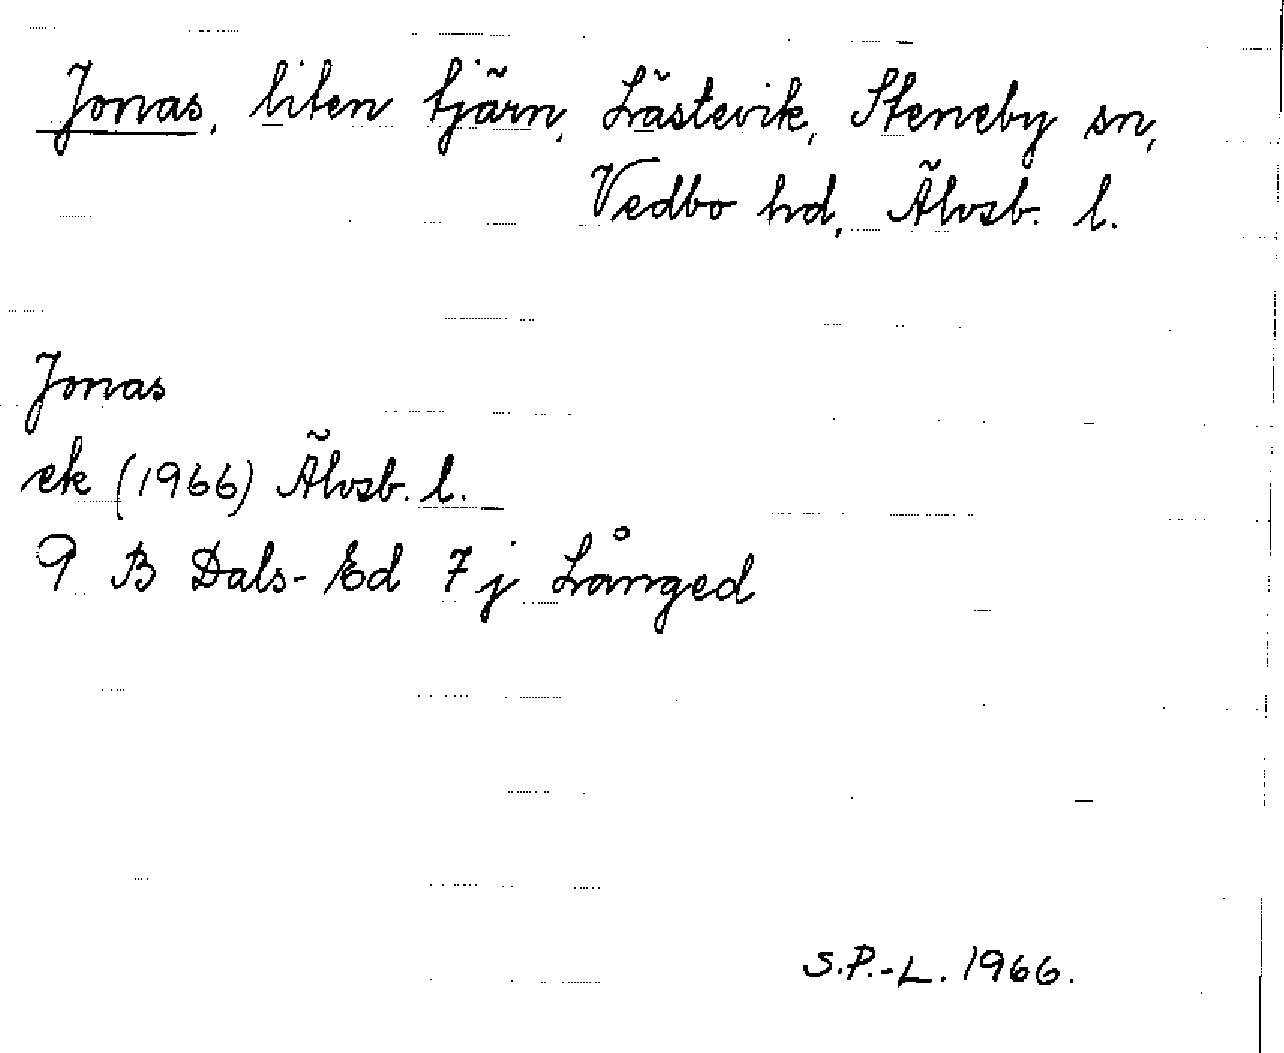 Jonas, liten tjärn, Lästevik, Steneby sn,
Vedbo hd, Älvsb. l.
Jonas
ek (1966) Älvsb. l.
9 B Dals-Ed 7 j Långed
S.P.-L. 1966.